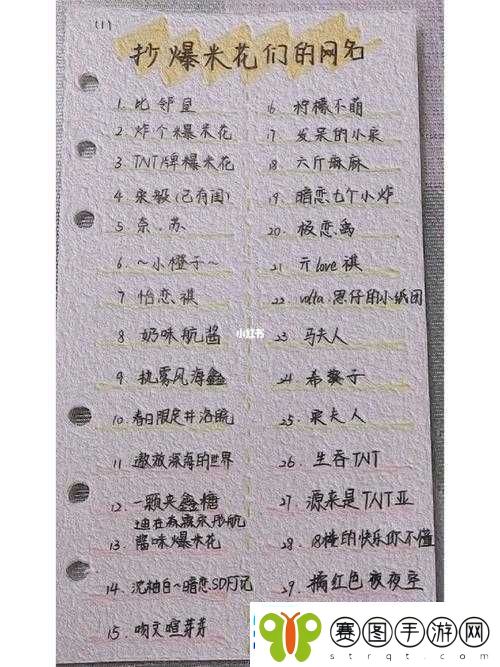 (1)
抄爆米花们的网名
1. 比邻星
2. 炸个爆米花
3. TNT牌爆米花
4. 亲敏(已有闺)
5. 奈.苏
6. ~小橙子~
7. 怡恋祺
8. 奶味航酱
9. 执雾风海鑫
10. 春日限定井洛晓
11. 遨放深海的世界
12. 一颗夹鑫糖
迪在森霖永彤航
13. 酱味爆米花
14. 沈柚白~暗恋SDFJ记
15. 吻文喧芽芽
6 柠檬不萌
17. 发呆的小朵
18. 六斤麻麻
19. 暗恋七个小炸
20. 极恋禹
21. 亓love祺
22. volta.思仔的小纸团
23. 马夫人
24. 希粪子
25. 栗夫人
26. 生吞TNT
27. 源来是TNT亚
28. 18楼的快乐你不懂
29. 橘红色夜夜空
小红书
赛图手游网
strqt.com